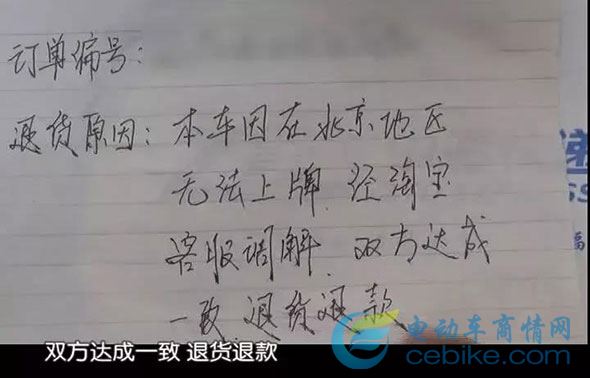 订单编号：
退货原因：本车因在北京地区
无法上牌，经淘宝
客服调解，双方达成
一致退货退款
递
SS
福
双方达成一致 退货退款
电动车商情网
cebike.com